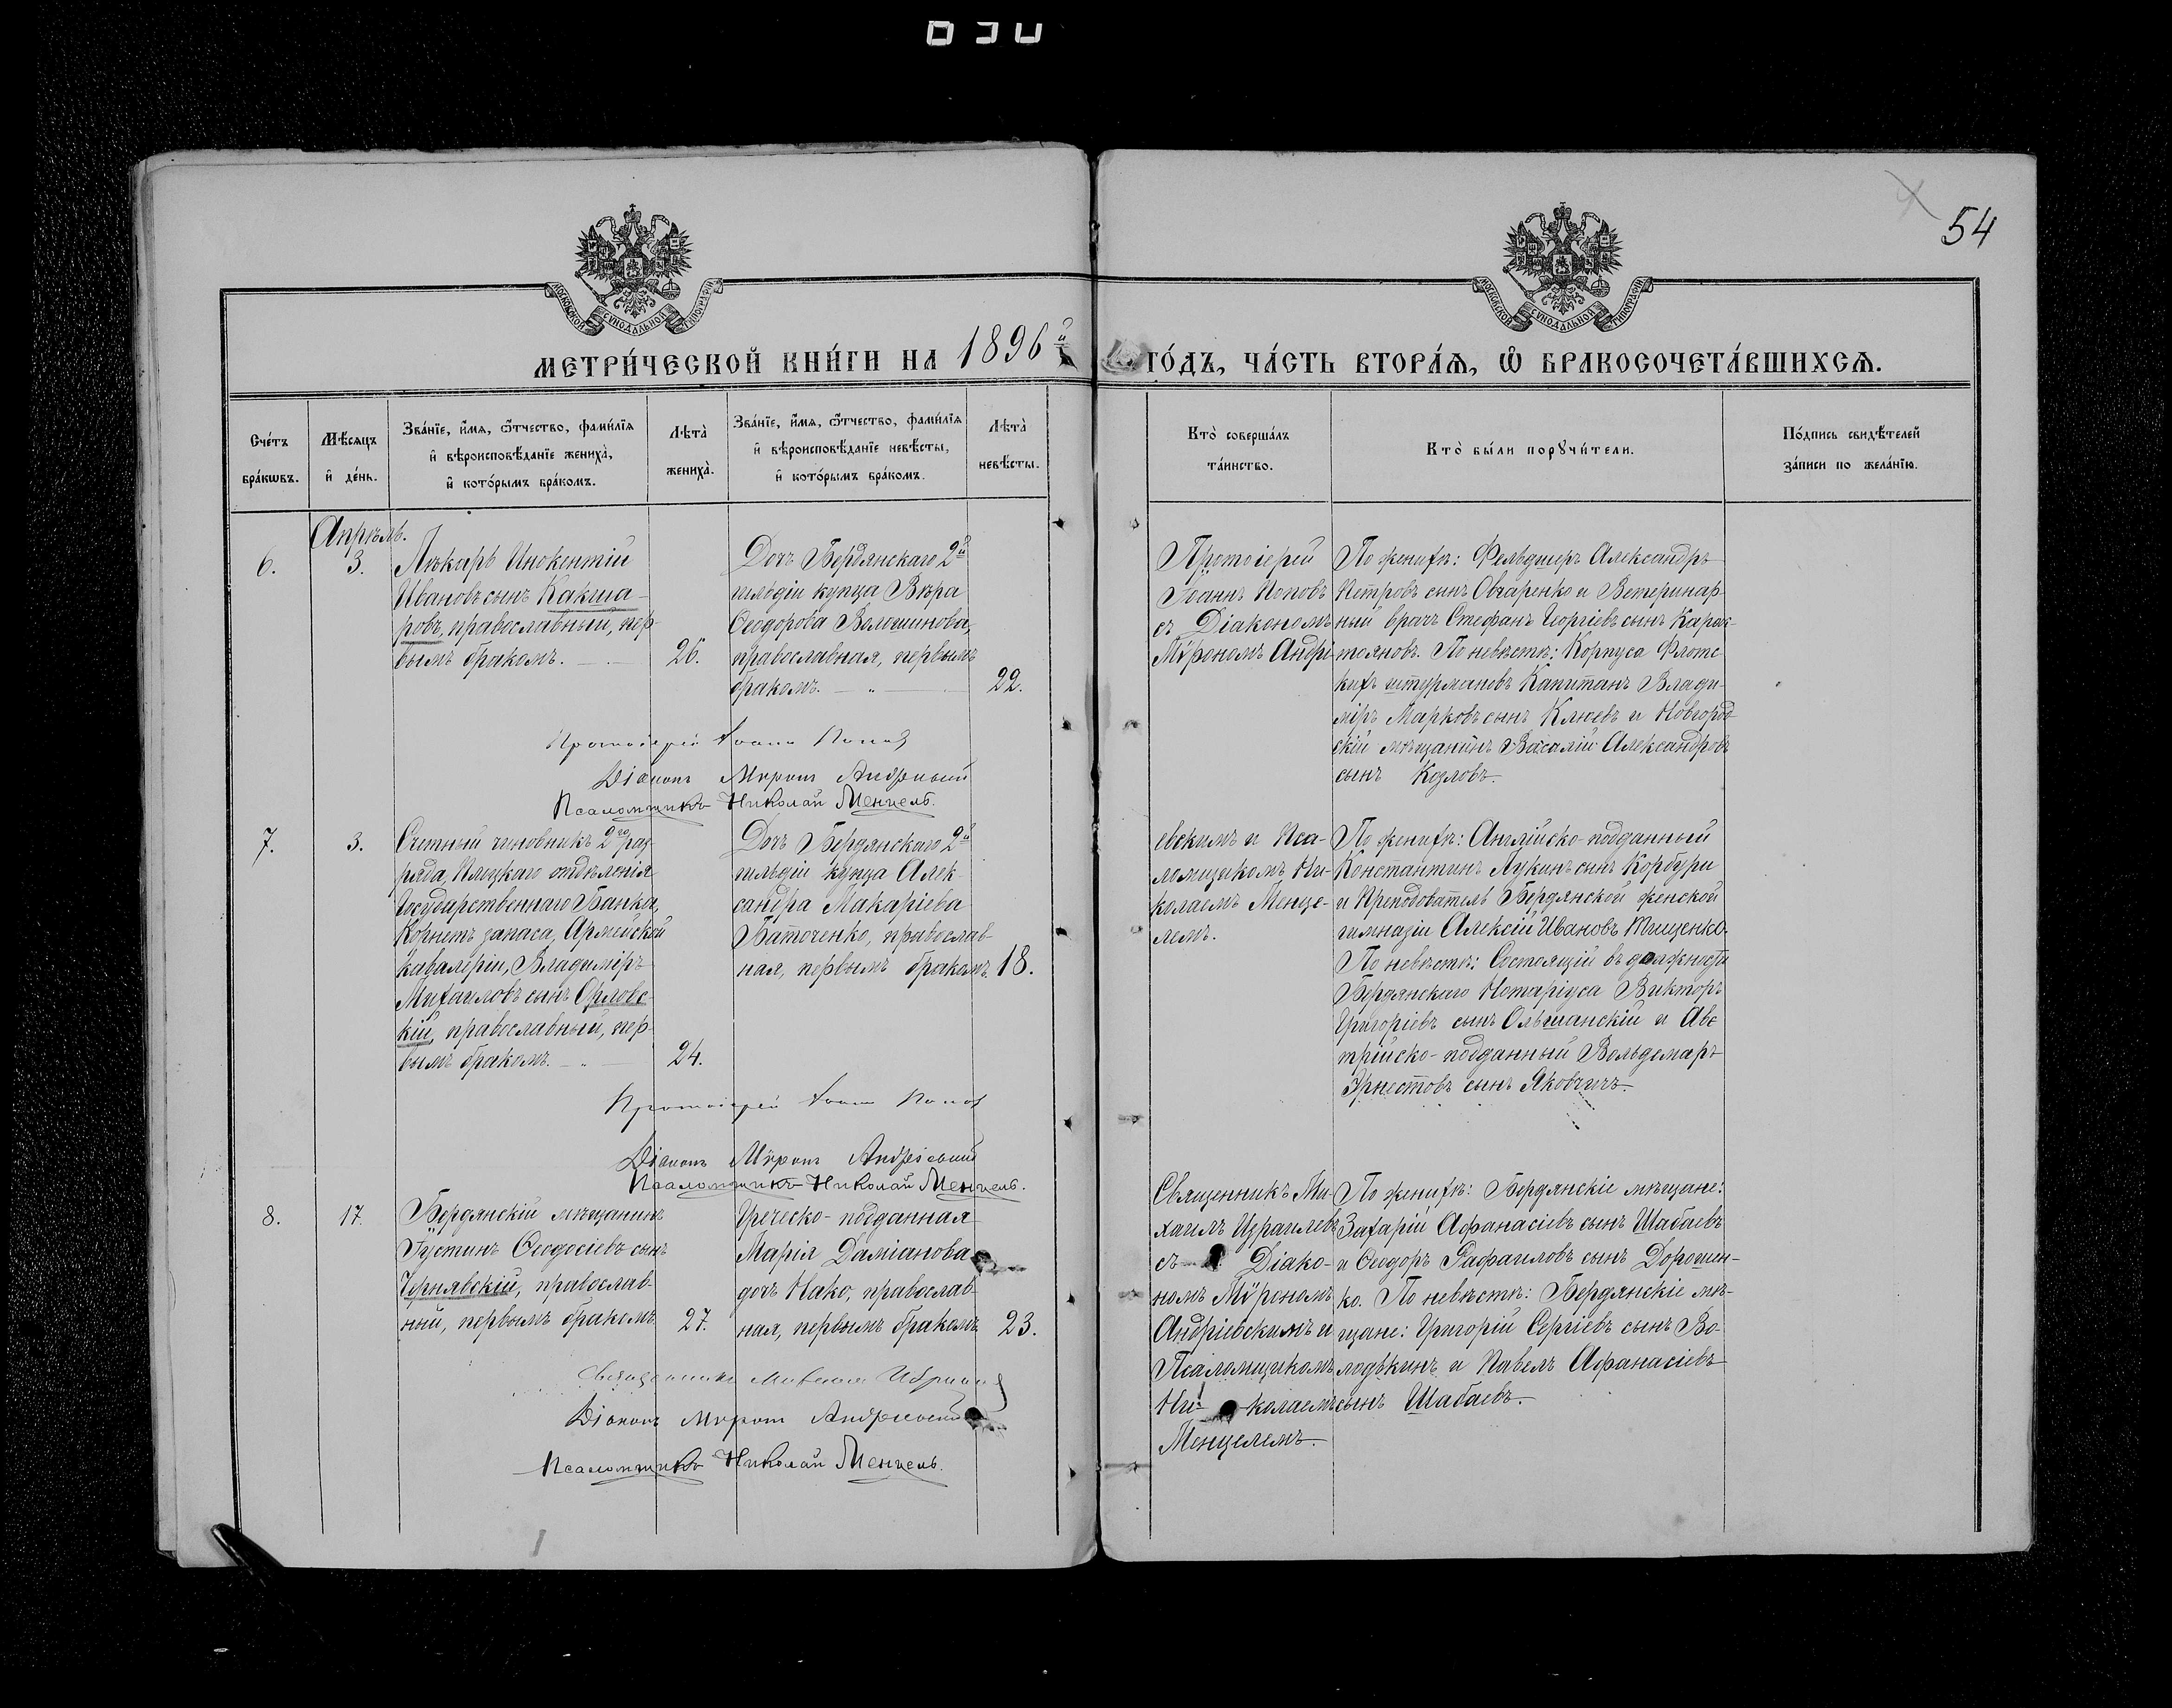 030
54
МОСКОВСКОЙ СУНОДАЛЬНОЙ ТИПОГРАФІИ
МОСКОВСКОЙ СУНОДАЛЬНОЙ ТИПОГРАФІИ
МЕТРИ́ЧЕСКОЙ КНИ́ГИ НА 1896 й ГО́ДЪ, ЧА́СТЬ ВТОРА́Ѧ, Ѽ БРАКОСОЧЕТА́ВШИХСѦ.
Сче́тъ бра́кѡвъ.
Мѣ́сѧцъ и҆ де́нь.
Зва́нїе, и҆́мѧ, ѻ҆́тчество, фами́лїѧ
и҆ вѣроисповѣ́данїе жениха̀,
и҆ кото́рымъ бра́комъ.
Лѣта̀ жениха̀.
Зва́нїе, и҆́мѧ, ѻ҆́тчество, фами́лїѧ
и҆ вѣроисповѣ́данїе невѣ́сты,
и҆ кото́рымъ бра́комъ.
Лѣта̀ невѣ́сты.
Кто̀ соверша́лъ
та́инство.
Кто̀ бы́ли порꙋчи́тели.
По́дпись свидѣ́телей
за́писи по жела́нїю.
Апрѣль.
6.
3.
Лѣкарь Инокентій
Ивановъ сынъ Какша-
ровъ, православный, пер-
вымъ бракомъ.
26.
Дочь Бердянскаго 2й
гильдіи купца Вѣра
Ѳеодорова Волошинова,
православная, первымъ
бракомъ.
22.
Протоіерей
Іоаннъ Поповъ
съ Діакономъ
Мѵрономъ Андрі-
По женихѣ: Фельдшеръ Александръ
Петровъ сынъ Овчаренко и Ветеринар-
ный врачъ Стефанъ Георгіевъ сынъ Карак-
тояновъ. По невѣстѣ: Корпуса Флотс-
кихъ штурмановъ Капитанъ Влади-
міръ Марковъ сынъ Клюевъ и Новгород-
скій мѣщанинъ Василій Александровъ
сынъ Козловъ.
Протоіерей Іоаннъ Попов
Діаконъ Мѵронъ Андріевскій
Псаломщикъ Николай Менцель.
7.
3.
Счетный чиновникъ 2го раз-
ряда, Плоцкаго отдѣленія
Государственнаго Банка,
Корнетъ запаса, Армейской
кавалеріи, Владиміръ
Михаиловъ сынъ Орловс-
кій, православный, пер-
вымъ бракомъ.
24.
Дочь Бердянскаго 2й
гильдіи купца Алек-
сандра Макаріева
Баточенко, православ-
ная, первымъ бракомъ.
18.
евскимъ и Пса-
ломщикомъ Ни-
колаемъ Менце-
лемъ.
По женихѣ: Англійско-подданный
Константинъ Лукинъ сынъ Корбури
и Преподователь Бердянской женской
гимназіи Алексій Ивановъ Тищенко.
По невѣстѣ: Состоящій въ должности
Бердянскаго Нотаріуса Викторъ
Григоріевъ сынъ Ольшанскій и Авс-
трійско-подданный Вольдемаръ
Эрнестовъ сынъ Яковчичъ.
Протоіерей Іоаннъ Попов
Діаконъ Мѵронъ Андріевскій
Псаломщикъ Николай Менцель.
8.
17.
Бердянскій мѣщанинъ
Іустинъ Ѳеодосіевъ сынъ
Чернявскій, православ-
ный, первымъ бракомъ.
27.
Греческо-подданная
Марія Даміанова
дочь Нако, православ-
ная, первымъ бракомъ.
23.
Священникъ Ми-
хаилъ Израилевъ
съ Діако-
номъ Мѵрономъ
Андріевскимъ и
Псаломщикомъ
Ни-колаемъ
Менцелемъ.
По женихѣ: Бердянскіе мѣщане:
Захарій Афанасіевъ сынъ Шабаевъ
и Ѳеодоръ Рафаиловъ сынъ Дорошен-
ко. По невѣстѣ: Бердянскіе мѣ-
щане: Григорій Сергіевъ сынъ Во-
лодькинъ и Павелъ Афанасіевъ
сынъ Шабаевъ.
Священникъ Михаилъ Израилев
Діаконъ Мѵронъ Андріевскій
Псаломщикъ Николай Менцель.